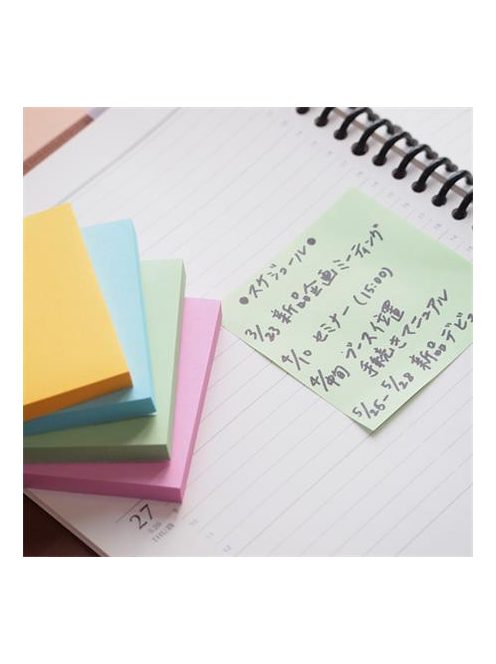 ●スケジュール●
3/23 新品企画ミーティング
4/10 セミナー(15:00)
4/中旬 ブース位置
手続きマニュアル
5/25-5/28 新品デビュ
27